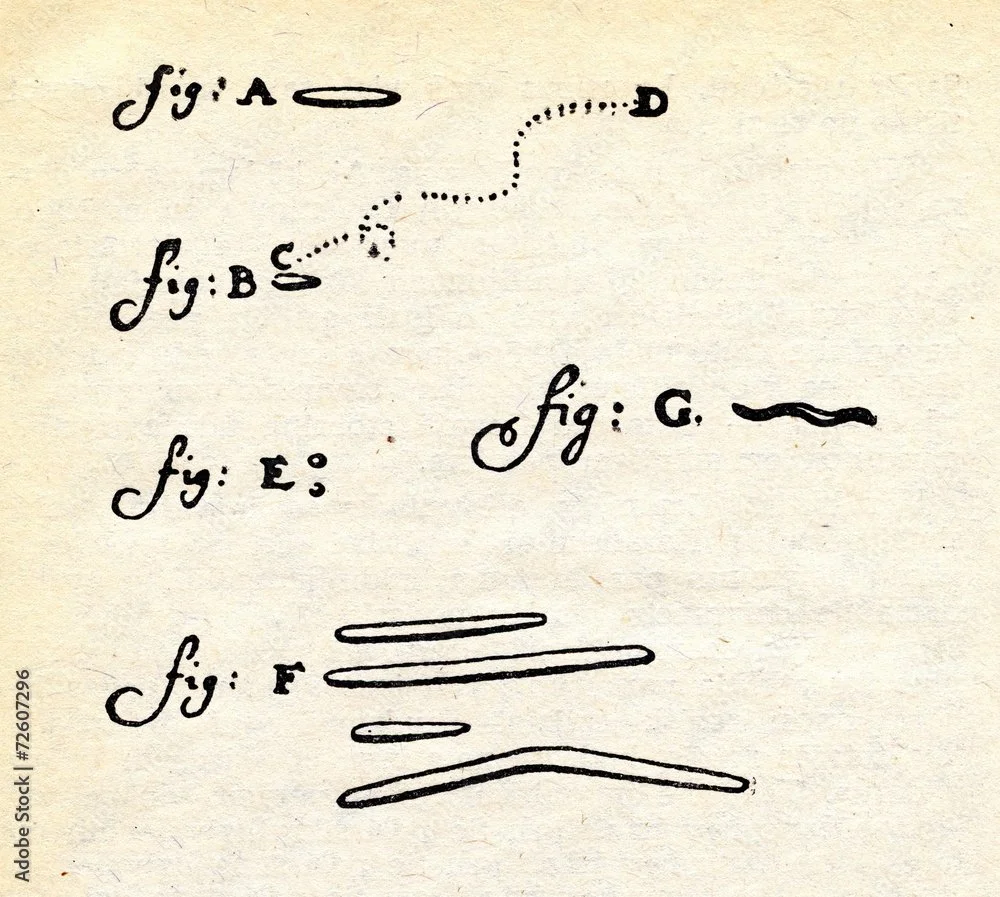 fig: A
D
fig: B C
fig: G.
fig: E
fig: F
Adobe Stock | 72607296